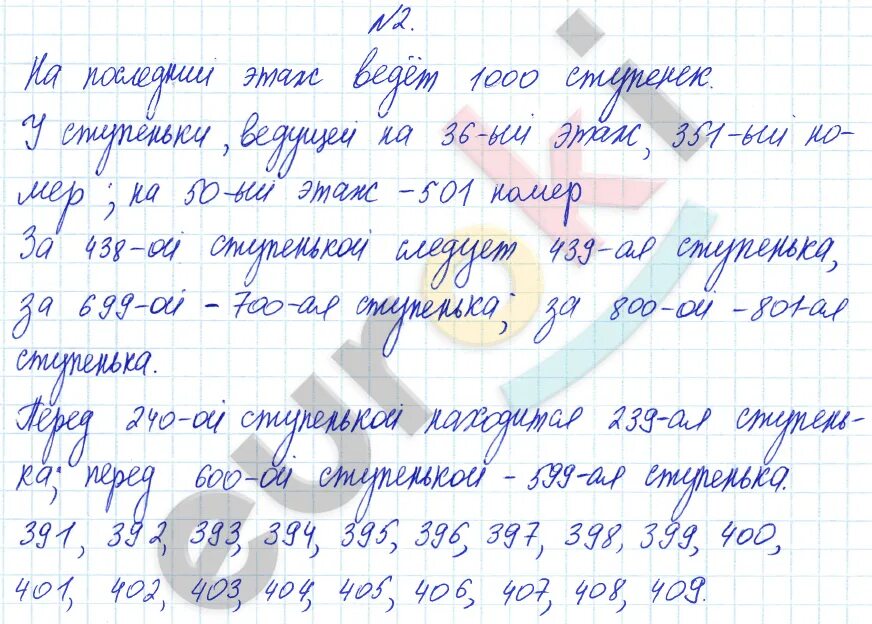 №2.
На последний этаж ведёт 1000 ступенек.
У ступеньки, ведущей на 36-ый этаж, 351-ый но-
мер; на 50-ый этаж - 501 номер
За 438-ой ступенькой следует 439-ая ступенька,
за 699-ой - 700-ая ступенька; за 800-ой - 801-ая
ступенька.
Перед 240-ой ступенькой находится 239-ая ступень-
ка; перед 600-ой ступенькой - 599-ая ступенька.
391, 392, 393, 394, 395, 396, 397, 398, 399, 400,
401, 402, 403, 404, 405, 406, 407, 408, 409.
euroki